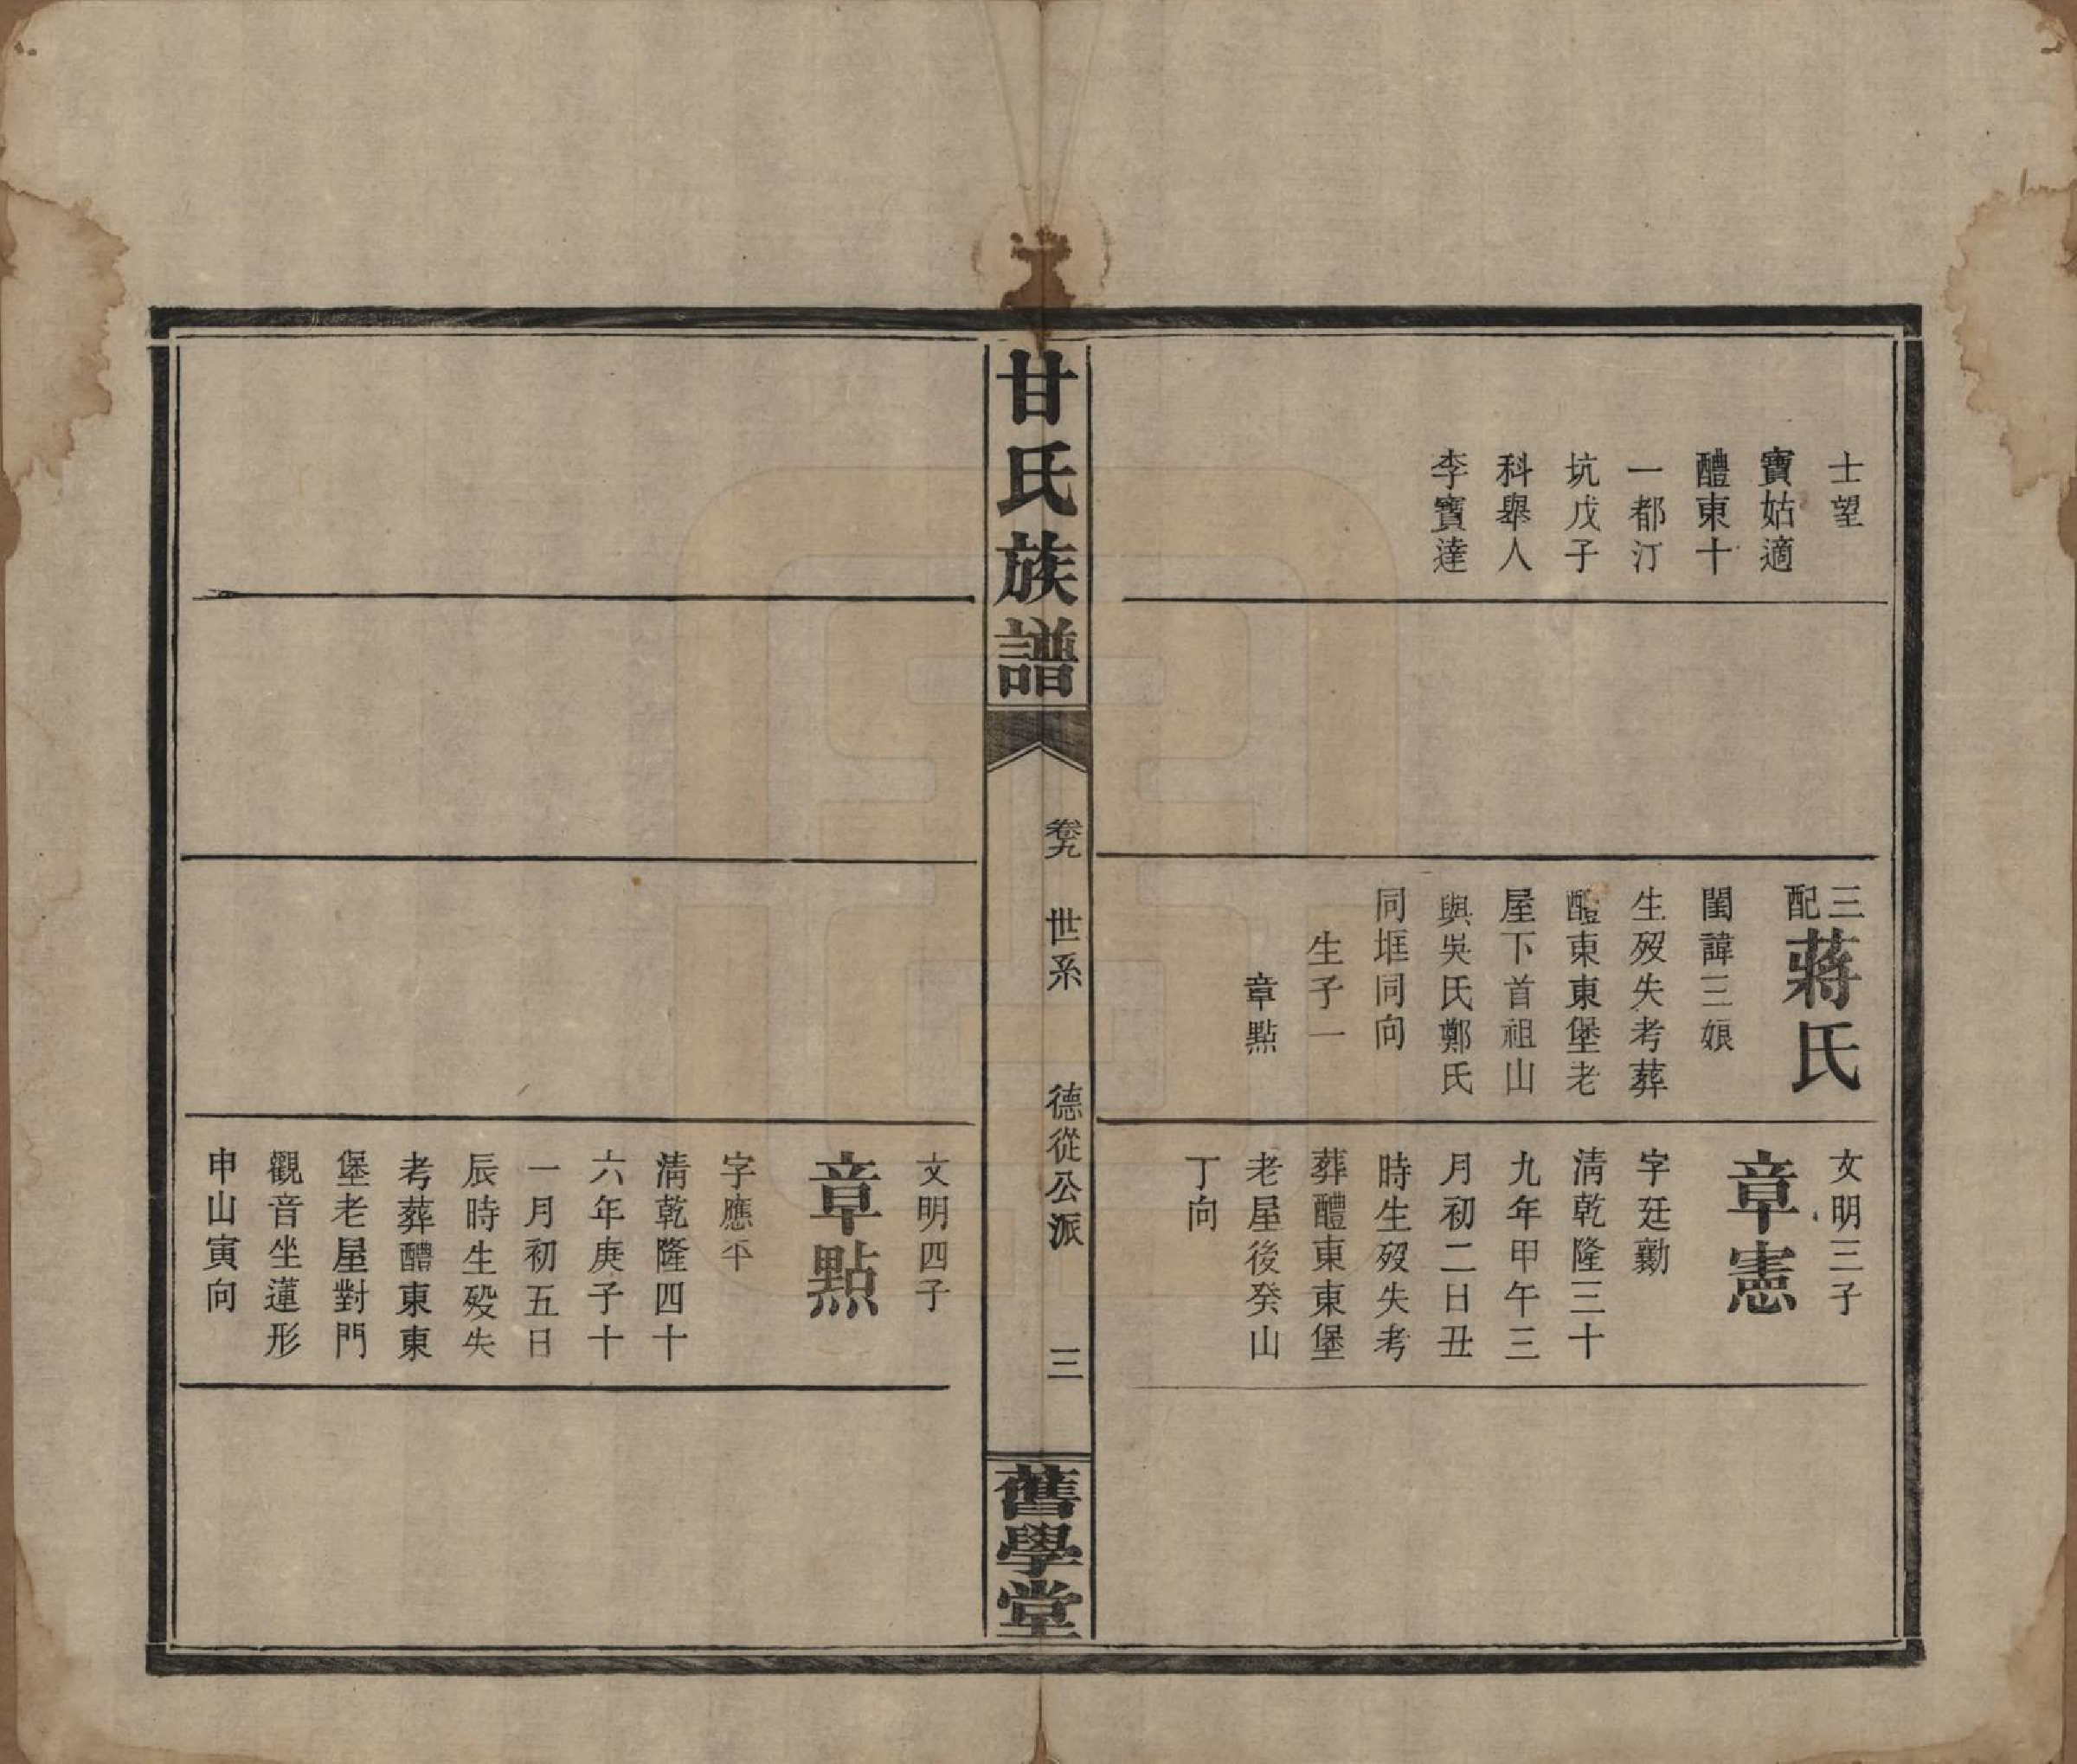 士望
寶姑適
醴東十
一都汀
坑戊子
科舉人
李寶達
三配蔣氏
閨諱三娘
生歿失考葬
醴東東堡老
屋下首祖山
與吳氏鄭氏
同堆同向
生子一
章點
文明三子
章憲
字廷勷
淸乾隆三十
九年甲午三
月初二日丑
時生歿失考
葬醴東東堡
老屋後癸山
丁向
甘氏族譜
卷九
世系
德從公派
三
舊學堂
文明四子
章點
字應平
淸乾隆四十
六年庚子十
一月初五日
辰時生殁失
考葬醴東東
堡老屋對門
觀音坐蓮形
申山寅向